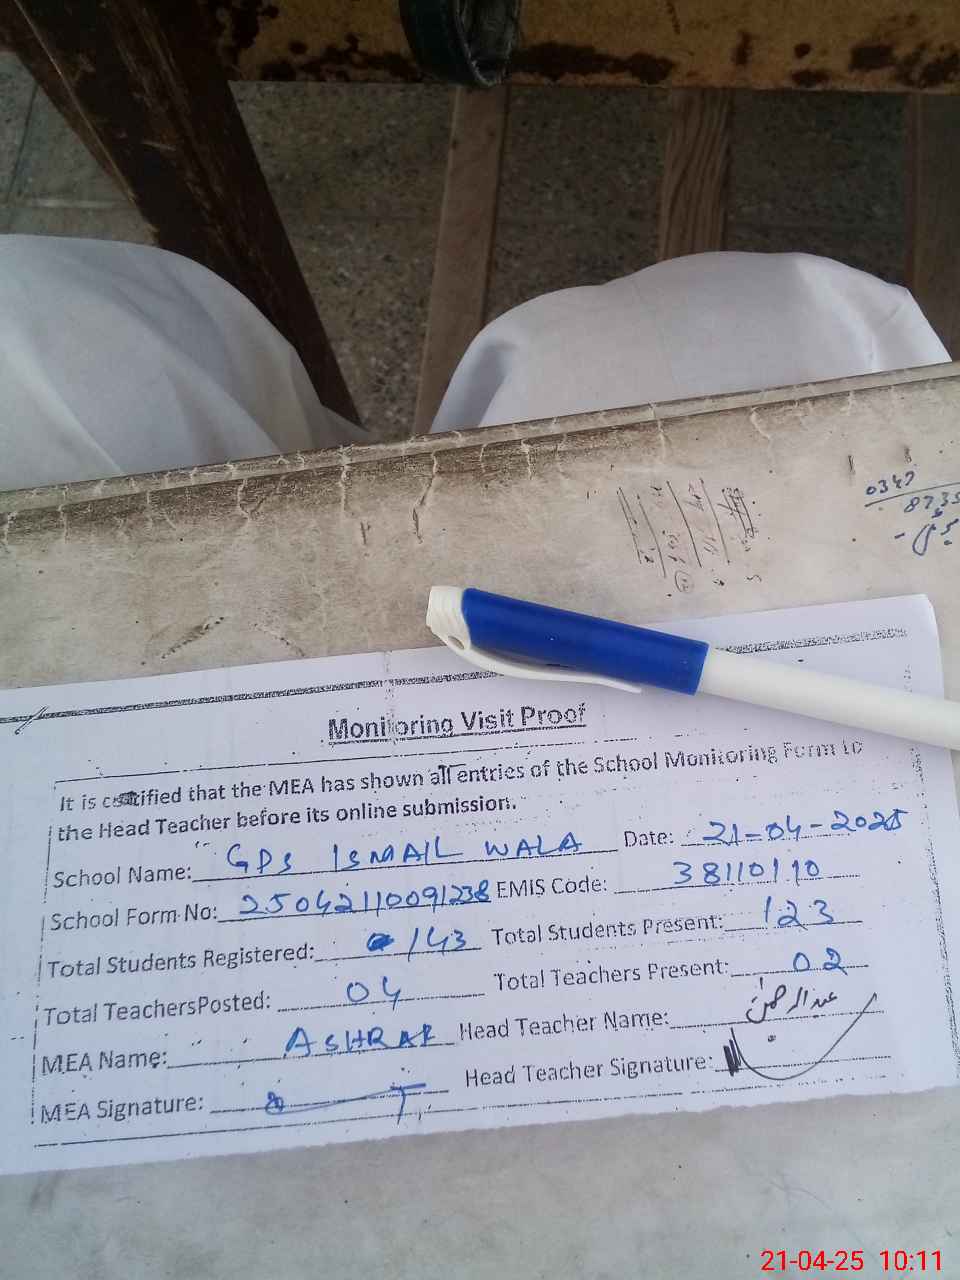 0347
Monitoring Visit Proof
It is certified that the MEA has shown all entries of the School Monitoring Form to
the Head Teacher before its online submission.
School Name: GPS ISMAIL WALA Date: 21-04-2025
School Form No: 25042110091238 EMIS Code: 38110110
Total Students Registered: 143 Total Students Present: 123
Total TeachersPosted: 04 Total Teachers Present: 02
MEA Name: ASHRAF Head Teacher Name: عبدالرحمن
MEA Signature: Head Teacher Signature:
21-04-25 10:11